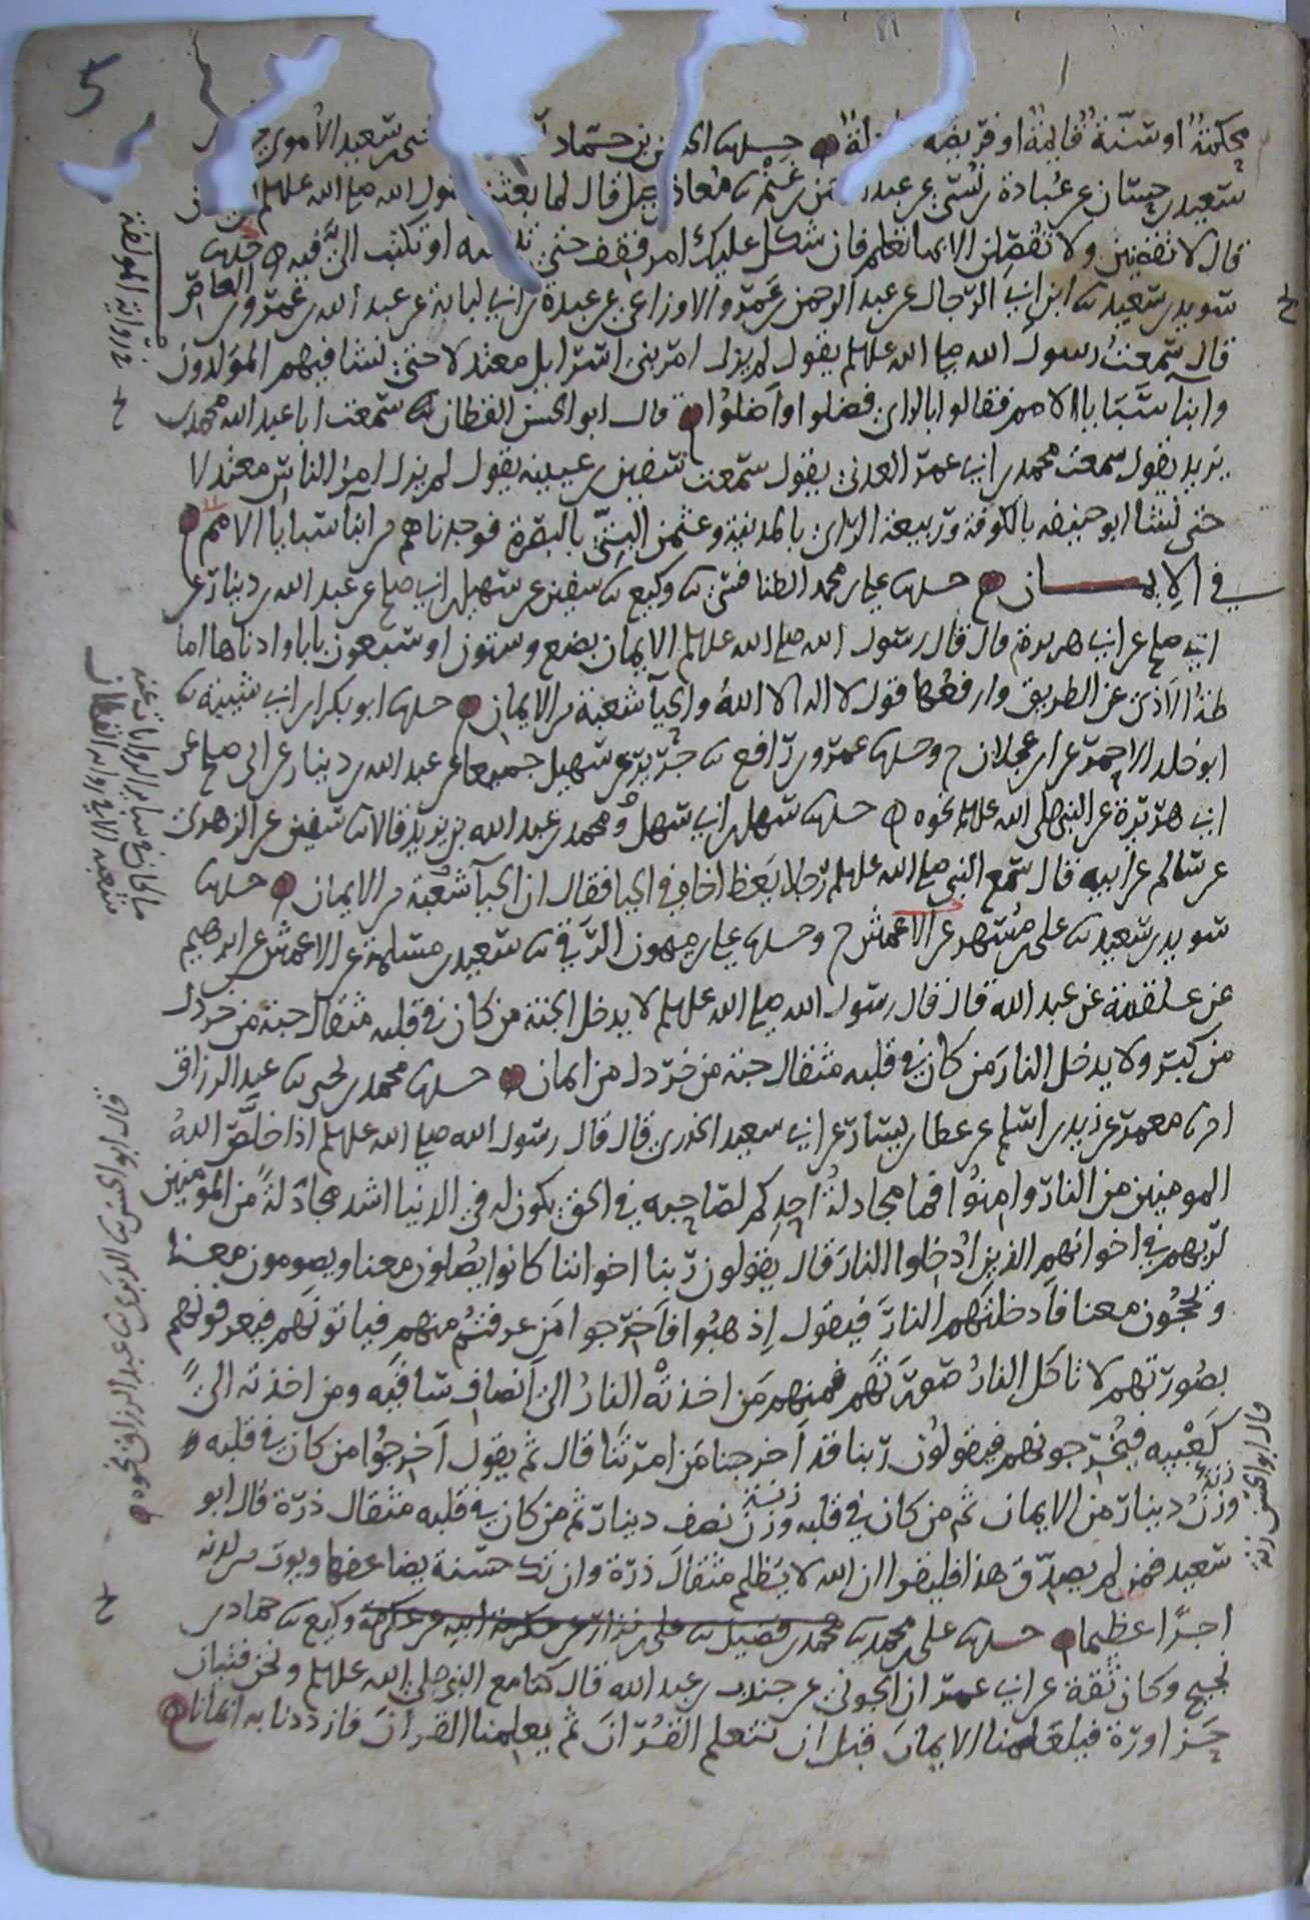 5
محكمة او سنة قائمة او فريضة حدثنا الحسن بن حماد سعيد الأموي
سعيد بن حسان عن عبادة بن نسي عن عبد الرحمن بن غنم ثنا معاذ بن جبل قال لما بعثني رسول الله صلى الله عليه وسلم
قال لا تقضين ولا تفصلن الا بما تعلم فان شكل عليك امر فقف حتى تبينه او تكتب الي فيه حدثنا
سويد بن سعيد ثنا ابن ابي الرجال عن عبد الرحمن بن عمرو الاوزاعي عن عبدة بن ابي لبابة عن عبد الله بن عمرو بن العاص
قال سمعت رسول الله صلى الله عليه وسلم يقول لم يزل امر بني اسرائيل معتدلا حتى نشا فيهم المولدون
وابنا سبايا الامم فقالوا بالراي فضلوا واضلوا قال ابو الحسن القطان سمعت ابا عبد الله محمد بن
يزيد يقول سمعت محمد بن ابي عمر العدني يقول سمعت سفين بن عيينة يقول لم يزل امر الناس معتدلا
حتى نشا ابو حنيفه بالكوفة وربيعة الراي بالمدينة وعثمن البتي بالبصرة فوجدناهم من ابنا سبايا الامم
في الايمان حدثنا علي بن محمد الطنافسي ثنا وكيع ثنا سفين عن سهيل بن ابي صالح عن عبد الله بن دينار عن
ابي صالح عن ابي هريرة قال قال رسول الله صلى الله عليه وسلم الايمان بضع وستون او سبعون بابا وادناها اما
طة الاذى عن الطريق وارفعها قول لا اله الا الله والحيا شعبة من الايمان حدثنا ابو بكر بن ابي شيبة ثنا
ابو خلد الاحمر عن ابن عجلان ح وحدثنا عمرو بن رافع ثنا جرير عن سهيل جميعا عن عبد الله بن دينار عن ابي صالح عن
ابي هريرة عن النبي صلى الله عليه وسلم نحوه حدثنا سهل بن ابي سهل ومحمد بن عبد الله بن يزيد قالا ثنا سفين عن الزهري
عن سالم عن ابيه قال سمع النبي صلى الله عليه وسلم رجلا يعظ اخاه في الحيا فقال ان الحيا شعبة من الايمان حدثنا
سويد بن سعيد ثنا علي بن مسهر عن الاعمش ح وحدثنا علي بن ميمون الرقي ثنا سعيد بن مسلمة عن الاعمش عن ابرهيم
عن علقمة عن عبد الله قال قال رسول الله صلى الله عليه وسلم لا يدخل الجنة من كان في قلبه مثقال حبة من خردل
من كبر ولا يدخل النار من كان في قلبه مثقال حبة من خردل من ايمان حدثنا محمد بن يحيى ثنا عبد الرزاق
انا معمر عن زيد بن اسلم عن عطا بن يسار عن ابي سعيد الخدري قال قال رسول الله صلى الله عليه وسلم اذا خلص الله
المومنين من النار وامنوا فما مجادلة احدكم لصاحبه في الحق يكون له في الدنيا اشد مجادلة من المومنين
لربهم في اخوانهم الذين ادخلوا النار قال يقولون ربنا اخواننا كانوا يصلون معنا ويصومون معنا
ويحجون معنا فادخلتهم النار فيقول اذهبوا فاخرجوا من عرفتم منهم فياتونهم فيعرفونهم
بصورتهم لا تاكل النار صورتهم فمنهم من اخذته النار الى انصاف ساقيه ومن اخذته الى
كعبيه فيخرجونهم فيقولون ربنا قد اخرجنا من امرتنا قال ثم يقول اخرجوا من كان في قلبه
وزن دينار من الايمان ثم من كان في قلبه وزن نصف دينار ثم من كان في قلبه مثقال ذرة قال ابو
سعيد فمن لم يصدق هذا فليقرا ان الله لا يظلم مثقال ذرة وان تك حسنة يضاعفها ويوت من لدنه
اجرا عظيما حدثنا علي بن محمد ثنا محمد بن فضيل ثنا علي بن نزار عن عكرمة ابيه عن عكرمة وكيع ثنا حماد بن
نجيح وكان ثقة عن ابي عمران الجوني عن جندب بن عبد الله قال كنا مع النبي صلى الله عليه وسلم ونحن فتيان
حزاورة فيتعلمنا الايمان قبل ان نتعلم القران ثم يعلمنا القران فازددنا به ايمانا
قال ابو الحسن ثنا الدبري ثنا عبد الرزاق نحوه
قال ابو الحسن زنة